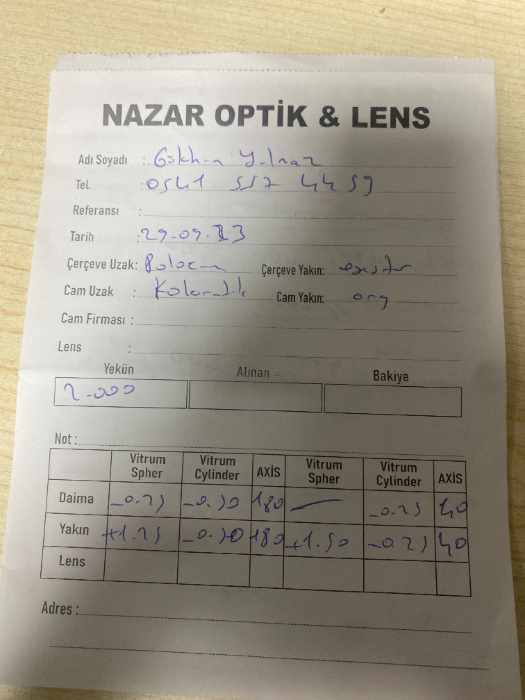 NAZAR OPTİK & LENS
Adı Soyadı : Gökhan Yılmaz
Tel. : 0541 557 44 59
Referansı :
Tarih : 29.09.23
Çerçeve Uzak: Çerçeve Yakın:
Cam Uzak : Cam Yakın: org
Cam Firması :
Lens :
Yekün Alınan Bakiye
2.000
Not :
Vitrum Spher Vitrum Cylinder AXİS Vitrum Spher Vitrum Cylinder AXİS
Daima -0.25 -0.50 180 — -0.25 40
Yakın +1.25 -0.50 180 +1.50 -0.25 40
Lens
Adres :